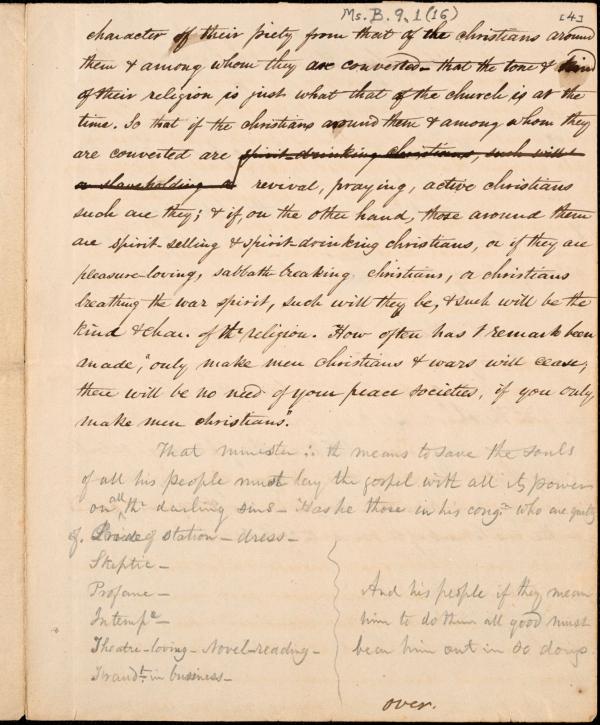 Ms. B. 9.1 (16) [4]
character of their piety from that of the christians around
them & among whom they are converted – that the tone & kind
of their religion is just what that of the church is at the
time. So that if the christians around them & among whom they
are converted are spirit-drinking christians, such will
a slaveholding revival, praying, active christians
such are they; & if, on the other hand, those around them
are spirit-selling & spirit-drinking christians, or if they are
pleasure-loving, sabbath breaking christians, or christians
breathing the war spirit, such will they be, & such will be the
kind & char. of thr religion. How often has t remark been
made, "only make men christians & wars will cease,
there will be no need of your peace societies, if you only
make men christians".
That minister ∴ tt means to save the souls
of all his people must lay the gospel with all its power
on all thr darling sins – Has he those in his congn who are guilty
of. Pride of station – dress –
Skeptic –
Profane –
Intempe –
Theatre-loving – Novel-reading –
Fraudt in business –
And his people if they mean
him to do them all good must
bear him out in so doing
over.